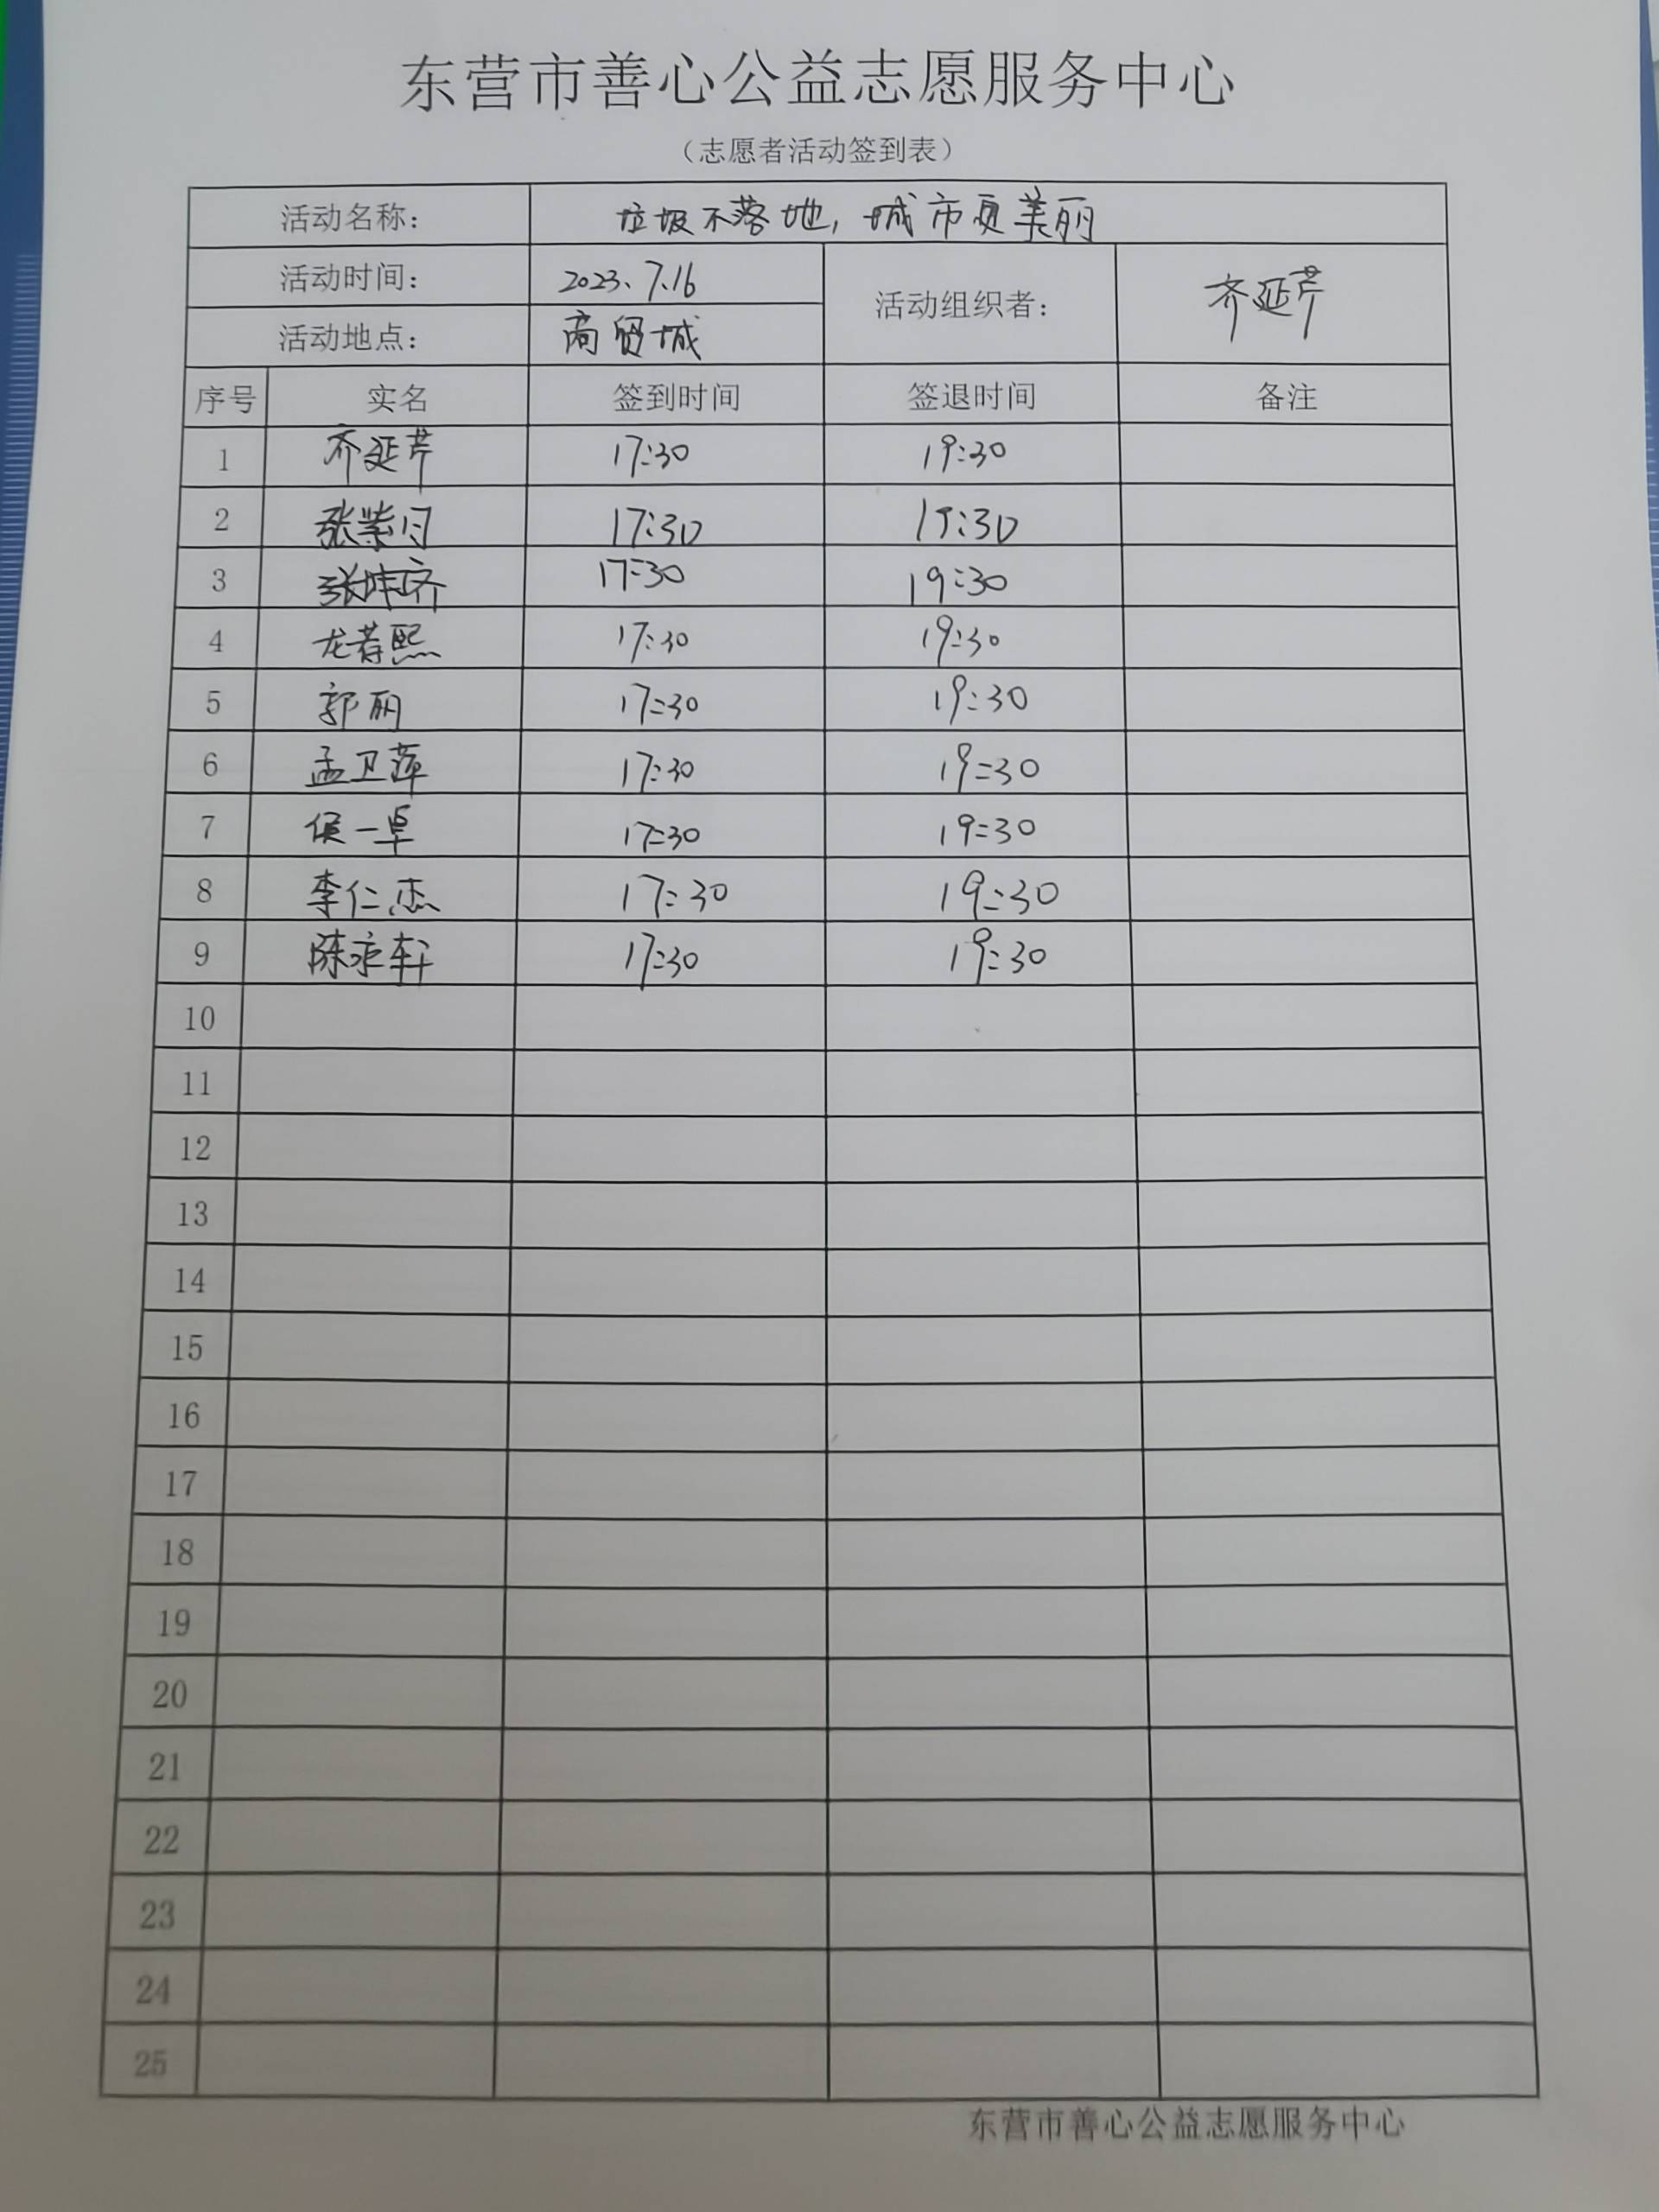 东营市善心公益志愿服务中心
（志愿者活动签到表）
活动名称： 垃圾不落地，城市更美丽
活动时间： 2023、7.16 活动组织者： 齐延芹
活动地点： 商贸城
序号 实名 签到时间 签退时间 备注
1 齐延芹 17:30 19:30
2 张紫月 17:30 19:30
3 张坤齐 17:30 19:30
4 龙若熙 17:30 19:30
5 郭丽 17:30 19:30
6 孟卫萍 17:30 19:30
7 侯一卓 17:30 19:30
8 李仁杰 17:30 19:30
9 陈承轩 17:30 19:30
10
11
12
13
14
15
16
17
18
19
20
21
22
23
24
25
东营市善心公益志愿服务中心